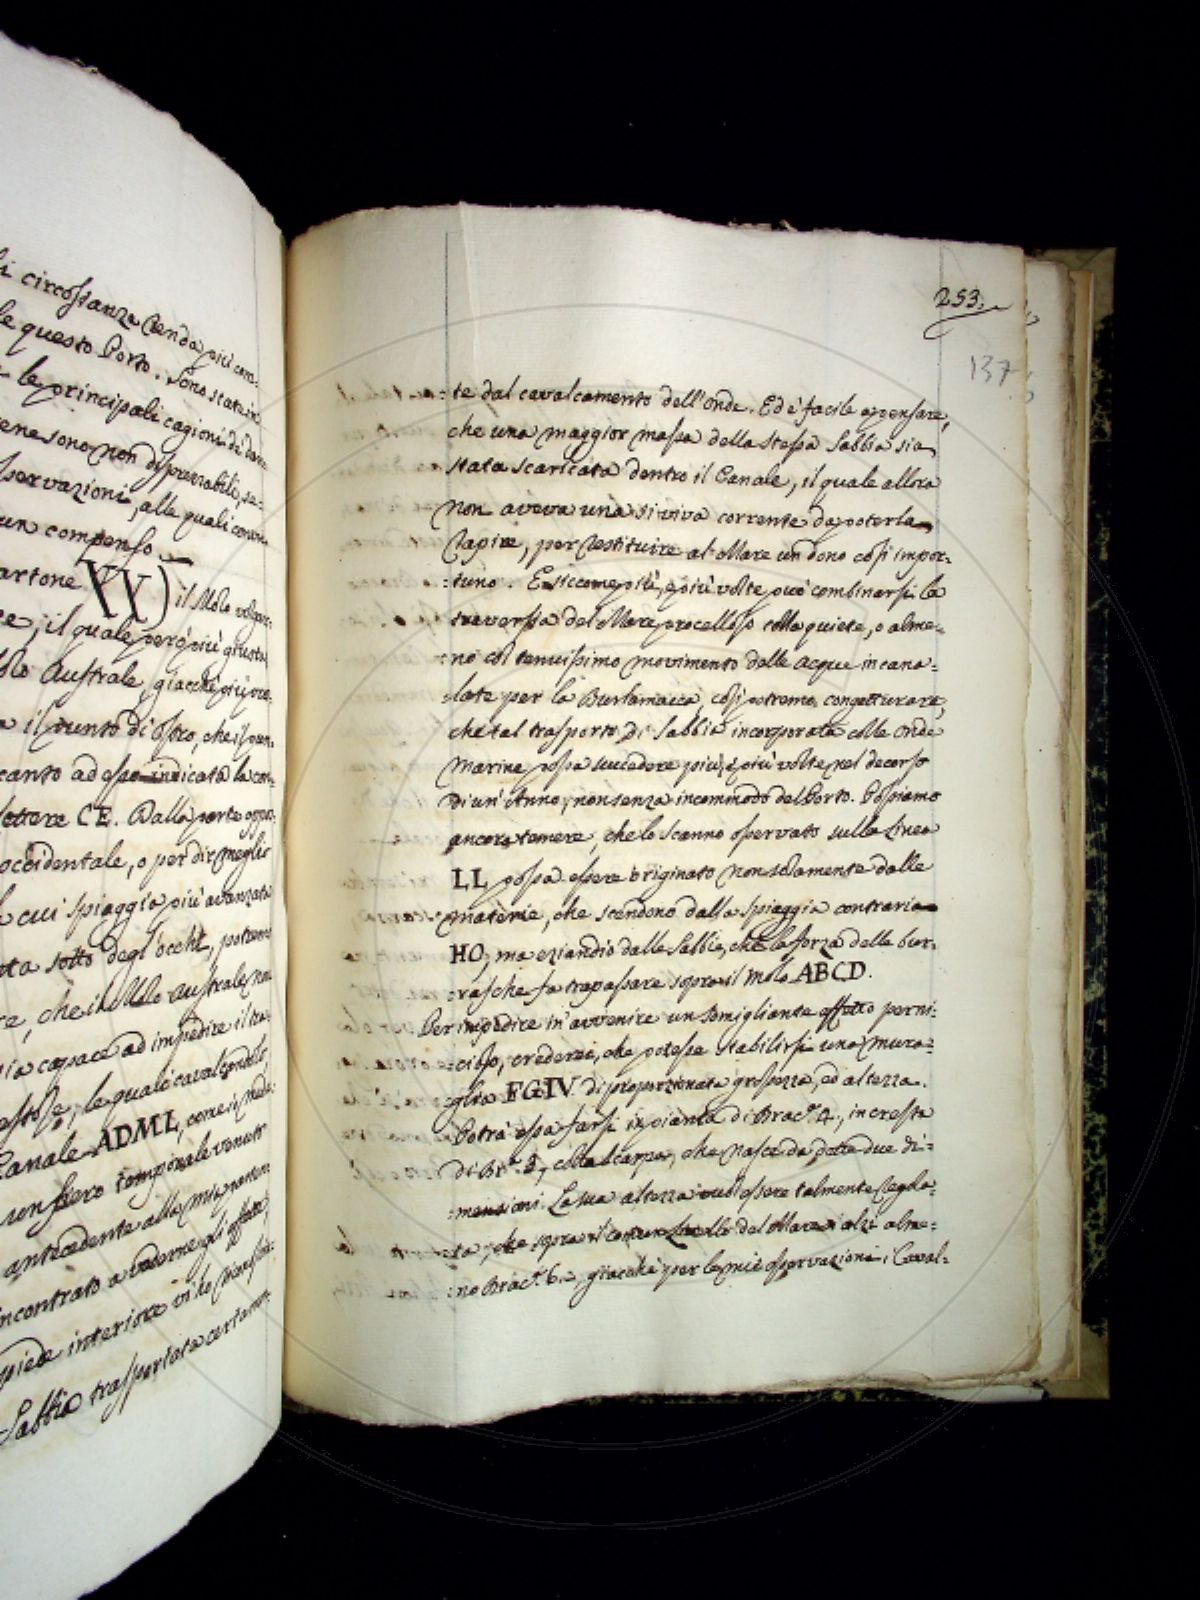 i circostanza renda più com-
le questo Porto. Sono state in
le principali cagioni di dan-
sono non disprezzabili, se-
servazioni, alle quali conv
un compenso.
artone XX) il Molo volgar-
e, il quale però più giusta
Molo Australe, giacchè più ove
a il punto di ostro, che il pon-
canto ad esso indicata la con-
lettere CE. Dalla parte oppo
occidentale, o per dir meglio
cui spiaggia più avanzata
sotto degl'occhi, potremo
re, che il Molo Australe non
sia capace ad impedire il tra-
, le quali cavalcando
Canale ADML, come si vede
un fiero temporale venuto
antecedente alla mia parten
incontrato a vederne gli effetti,
piede interiore vi lo
Sabbia trasportata certamen
253.
137
:te dal cavalcamento dell'onde. Ed è facile a pensare,
che una maggior massa della stessa Sabbia sia
stata scaricata dentro il Canale, il quale allora
non aveva una sì viva corrente da poterla
rapire, per restituire al Mare un dono così impor-
:tuno. E siccome più, e più volte può combinarsi la
traversia del Mare procelloso colla quiete, o alme-
:no col tenuissimo movimento delle acque incana-
:late per la Burlamacca, così potremo congetturare,
che tal trasporto di Sabbia incorporata colle Onde
Marine possa succedere più, e più volte nel decorso
di un'Anno, non senza incommodo del Porto. Possiamo
ancora temere, che lo scanno osservato sulla Linea
LL possa essere originato non solamente dalle
materie, che scendono dalla spiaggia contraria
HO, ma eziandio dalle Sabbie, che la forza delle bur-
rasche fa trapassare sopra il Molo ABCD.
Per impedire in avvenire un somigliante effetto perni-
:cioso, crederei, che potesse stabilirsi una mura-
glia FGIV di proporzionata grossezza, ed altezza.
Potrà essa farsi in pianta di Brac.ª 4, in cresta
di Br.ª 2, colla scarpa, che nasce da dette due di-
:mensioni. La sua altezza vuol essere talmente regola-
:ta, che sopra il comun livello del Mare si alzi alme-
:no Brac.ª 6, giacchè per le mie osservazioni i Caval-